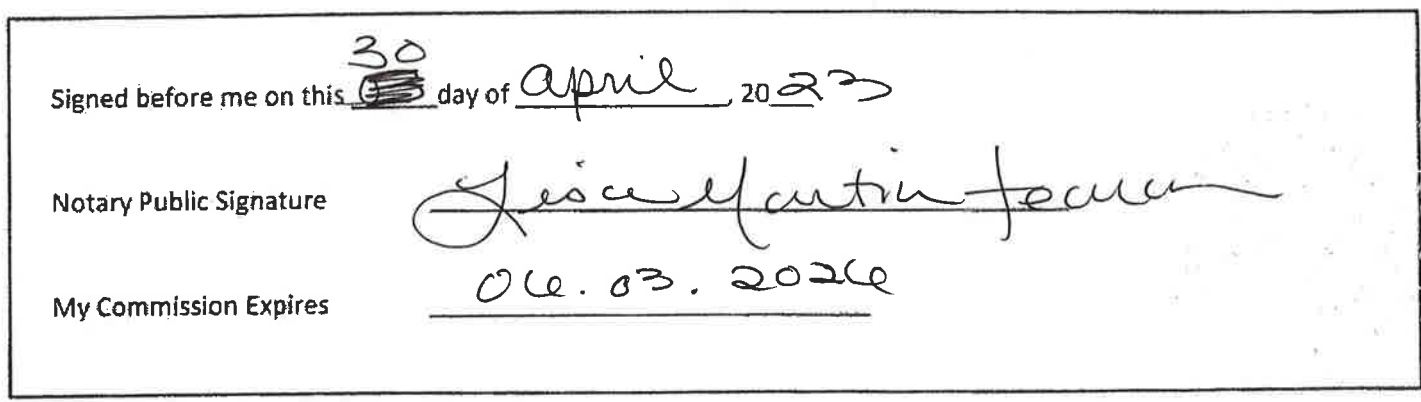 30
Signed before me on this day of april, 2023
Notary Public Signature Lisa Martin
My Commission Expires 06.03.2026